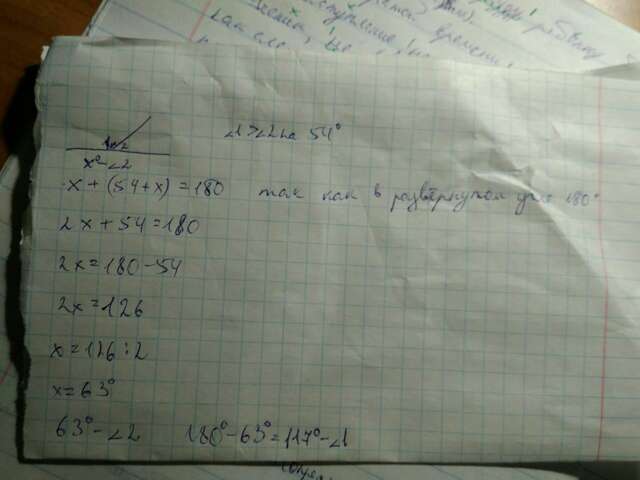 речной
времени,
∠1 > ∠2 на 54°
1 2
x° - ∠2
x + (54 + x) = 180 так как в развёрнутом угле 180°
2x + 54 = 180
2x = 180 - 54
2x = 126
x = 126 : 2
x = 63°
63° - ∠2 180° - 63° = 117° - ∠1